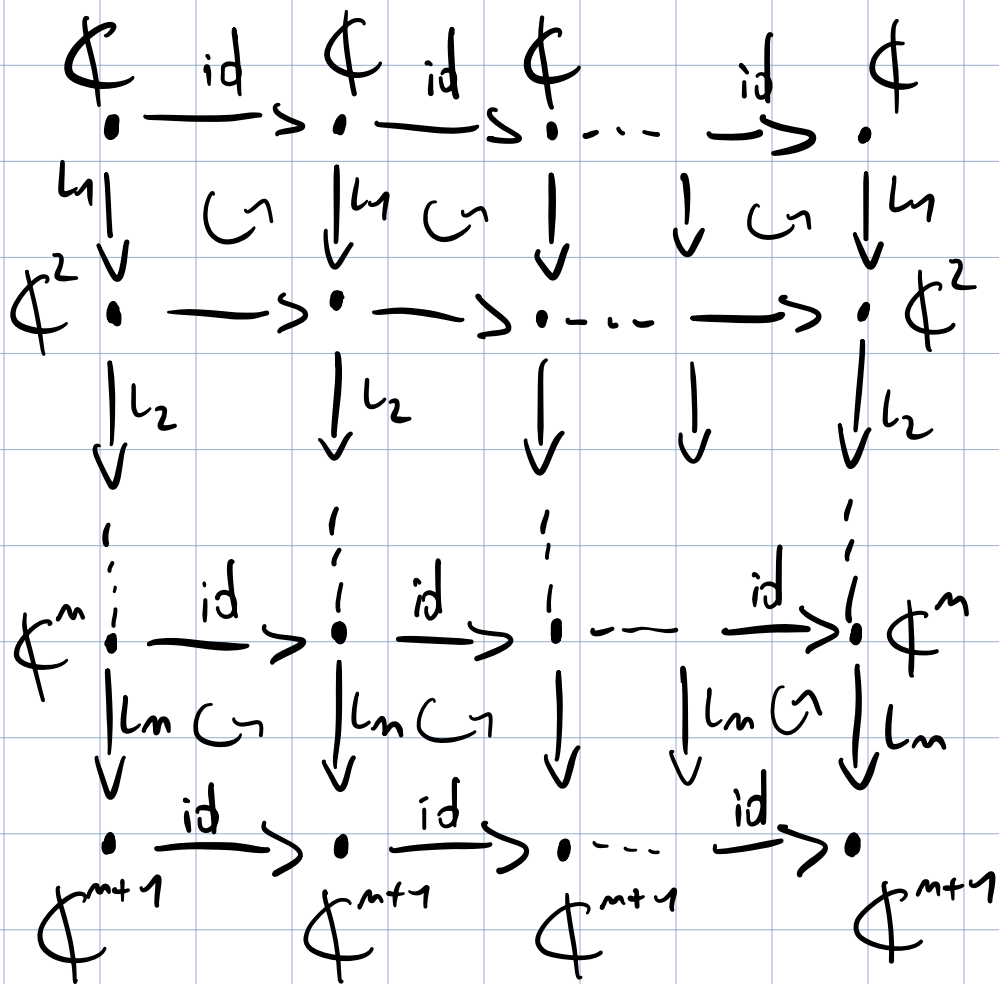 ℂ id ℂ id ℂ id ℂ
L1 L1 L1
ℂ² ℂ²
L2 L2 L2
id id id
ℂⁿ ℂⁿ
Ln Ln Ln Ln
id id id
ℂⁿ⁺¹ ℂⁿ⁺¹ ℂⁿ⁺¹ ℂⁿ⁺¹